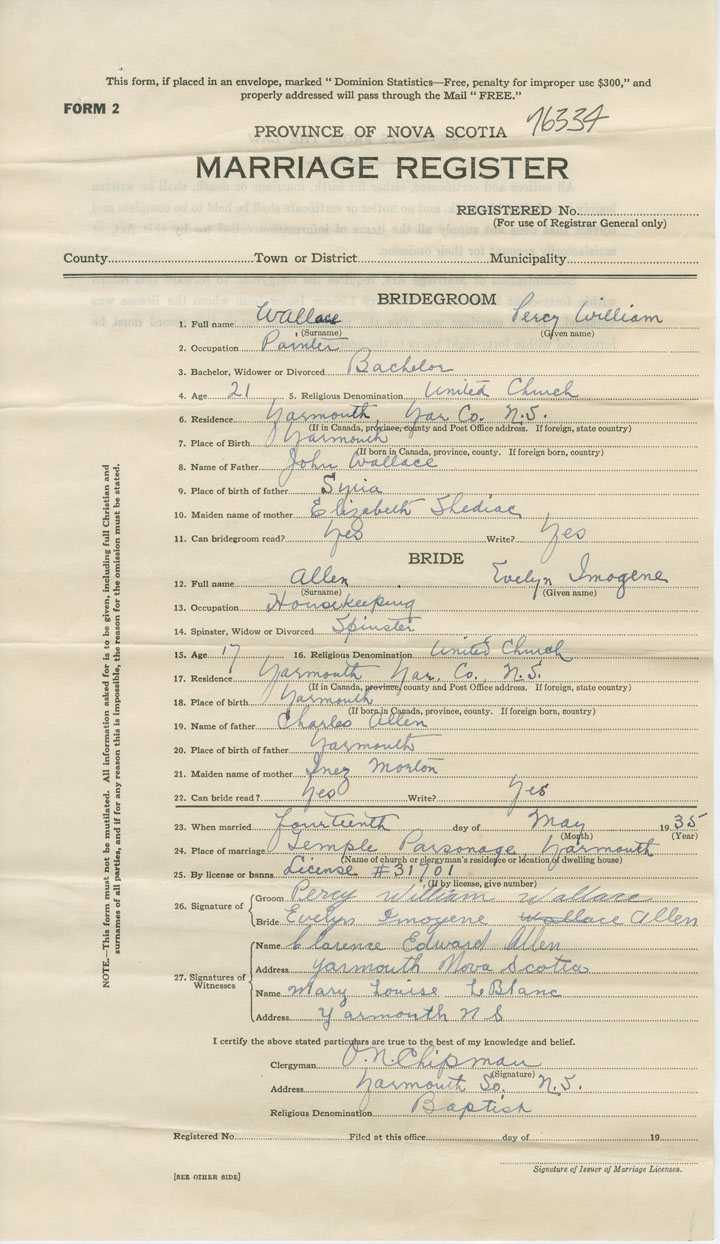 This form, if placed in an envelope, marked " Dominion Statistics—Free, penalty for improper use $300," and
properly addressed will pass through the Mail " FREE."
FORM 2
PROVINCE OF NOVA SCOTIA 76334
MARRIAGE REGISTER
REGISTERED No.
(For use of Registrar General only)
County Town or District Municipality
BRIDEGROOM
1. Full name Wallace Percy William
(Surname) (Given name)
2. Occupation Painter
3. Bachelor, Widower or Divorced Bachelor
4. Age 21 5. Religious Denomination United Church
6. Residence Yarmouth Yar Co. N.S.
(If in Canada, province, county and Post Office address. If foreign, state country)
7. Place of Birth Yarmouth
(If born in Canada, province, county. If foreign born, country)
8. Name of Father John Wallace
9. Place of birth of father Syria
10. Maiden name of mother Elizabeth Shediac
11. Can bridegroom read? Yes Write? Yes
BRIDE
12. Full name Allen Evelyn Imogene
(Surname) (Given name)
13. Occupation Housekeeping
14. Spinster, Widow or Divorced Spinster
15. Age 17 16. Religious Denomination United Church
17. Residence Yarmouth Yar. Co. N.S.
(If in Canada, province, county and Post Office address. If foreign, state country)
18. Place of birth Yarmouth
(If born in Canada, province, county. If foreign born, country)
19. Name of father Charles Allen
20. Place of birth of father Yarmouth
21. Maiden name of mother Inez Morton
22. Can bride read? Yes Write? Yes
23. When married fourteenth day of May 1935
(Month) (Year)
24. Place of marriage Temple Parsonage, Yarmouth
(Name of church or clergyman's residence or location of dwelling house)
25. By license or banns License #31701
(If by license, give number)
26. Signature of Groom Percy William Wallace
Bride Evelyn Imogene Wallace Allen
27. Signatures of Witnesses
Name Clarence Edward Allen
Address Yarmouth Nova Scotia
Name Mary Louise LeBlanc
Address Yarmouth N S
I certify the above stated particulars are true to the best of my knowledge and belief.
Clergyman O.N. Chipman
(Signature)
Address Yarmouth So. N.S.
Religious Denomination Baptist
Registered No. Filed at this office day of 19
Signature of Issuer of Marriage Licenses.
[SEE OTHER SIDE]
NOTE.—This form must not be mutilated. All information asked for is to be given, including full Christian and
surnames of all parties, and if for any reason this is impossible, the reason for the omission must be stated.